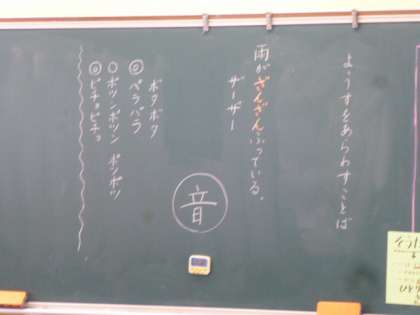 ようすをあらわすことば
雨がざんざんふっている。
ザーザー
音
ボタボタ
◎パラパラ
○ポツンポツン ポツポツ
◎ピチョピチョ